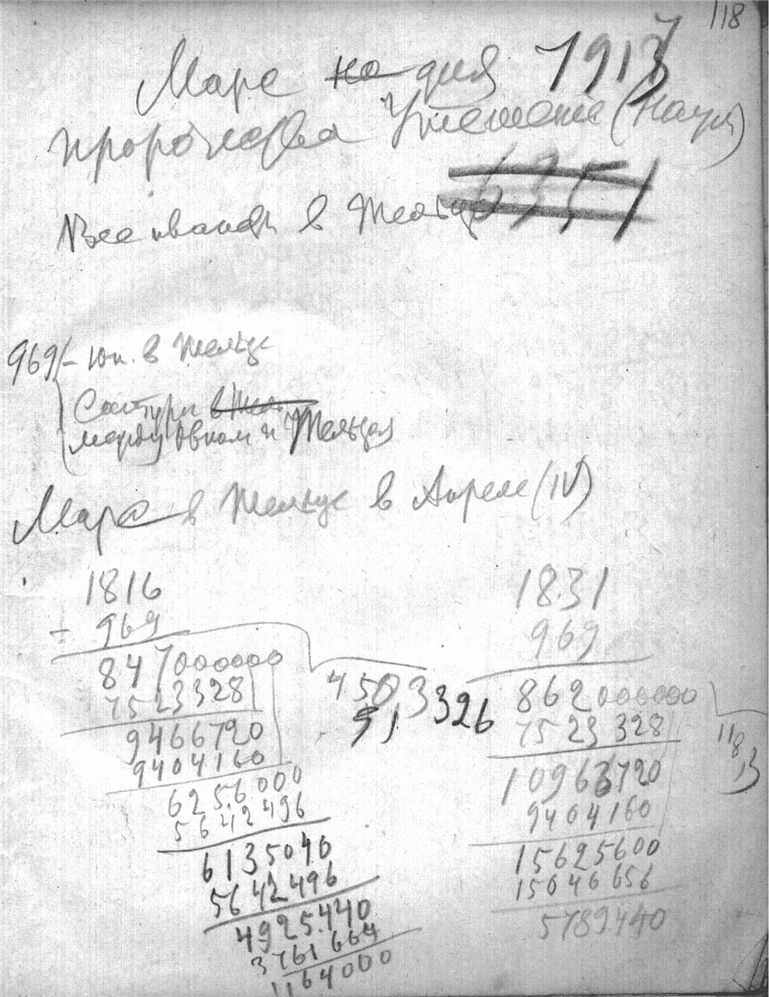 118
Марс на для 1913
пророчества (Наум)
6351
в Тельце
969 – Юп. в Тельце
Сатурн в Тел
между Овном и Тельцом
Марс в Тельце в Апреле (IV)
1816
– 969
847000000
7523328
9466720
9404160
6256000
5642496
6135040
5642496
4925440
3761664
1164000
4503326
51
1831
969
862000000
7523328
10963720
9404160
15625600
15046656
5789440
11813